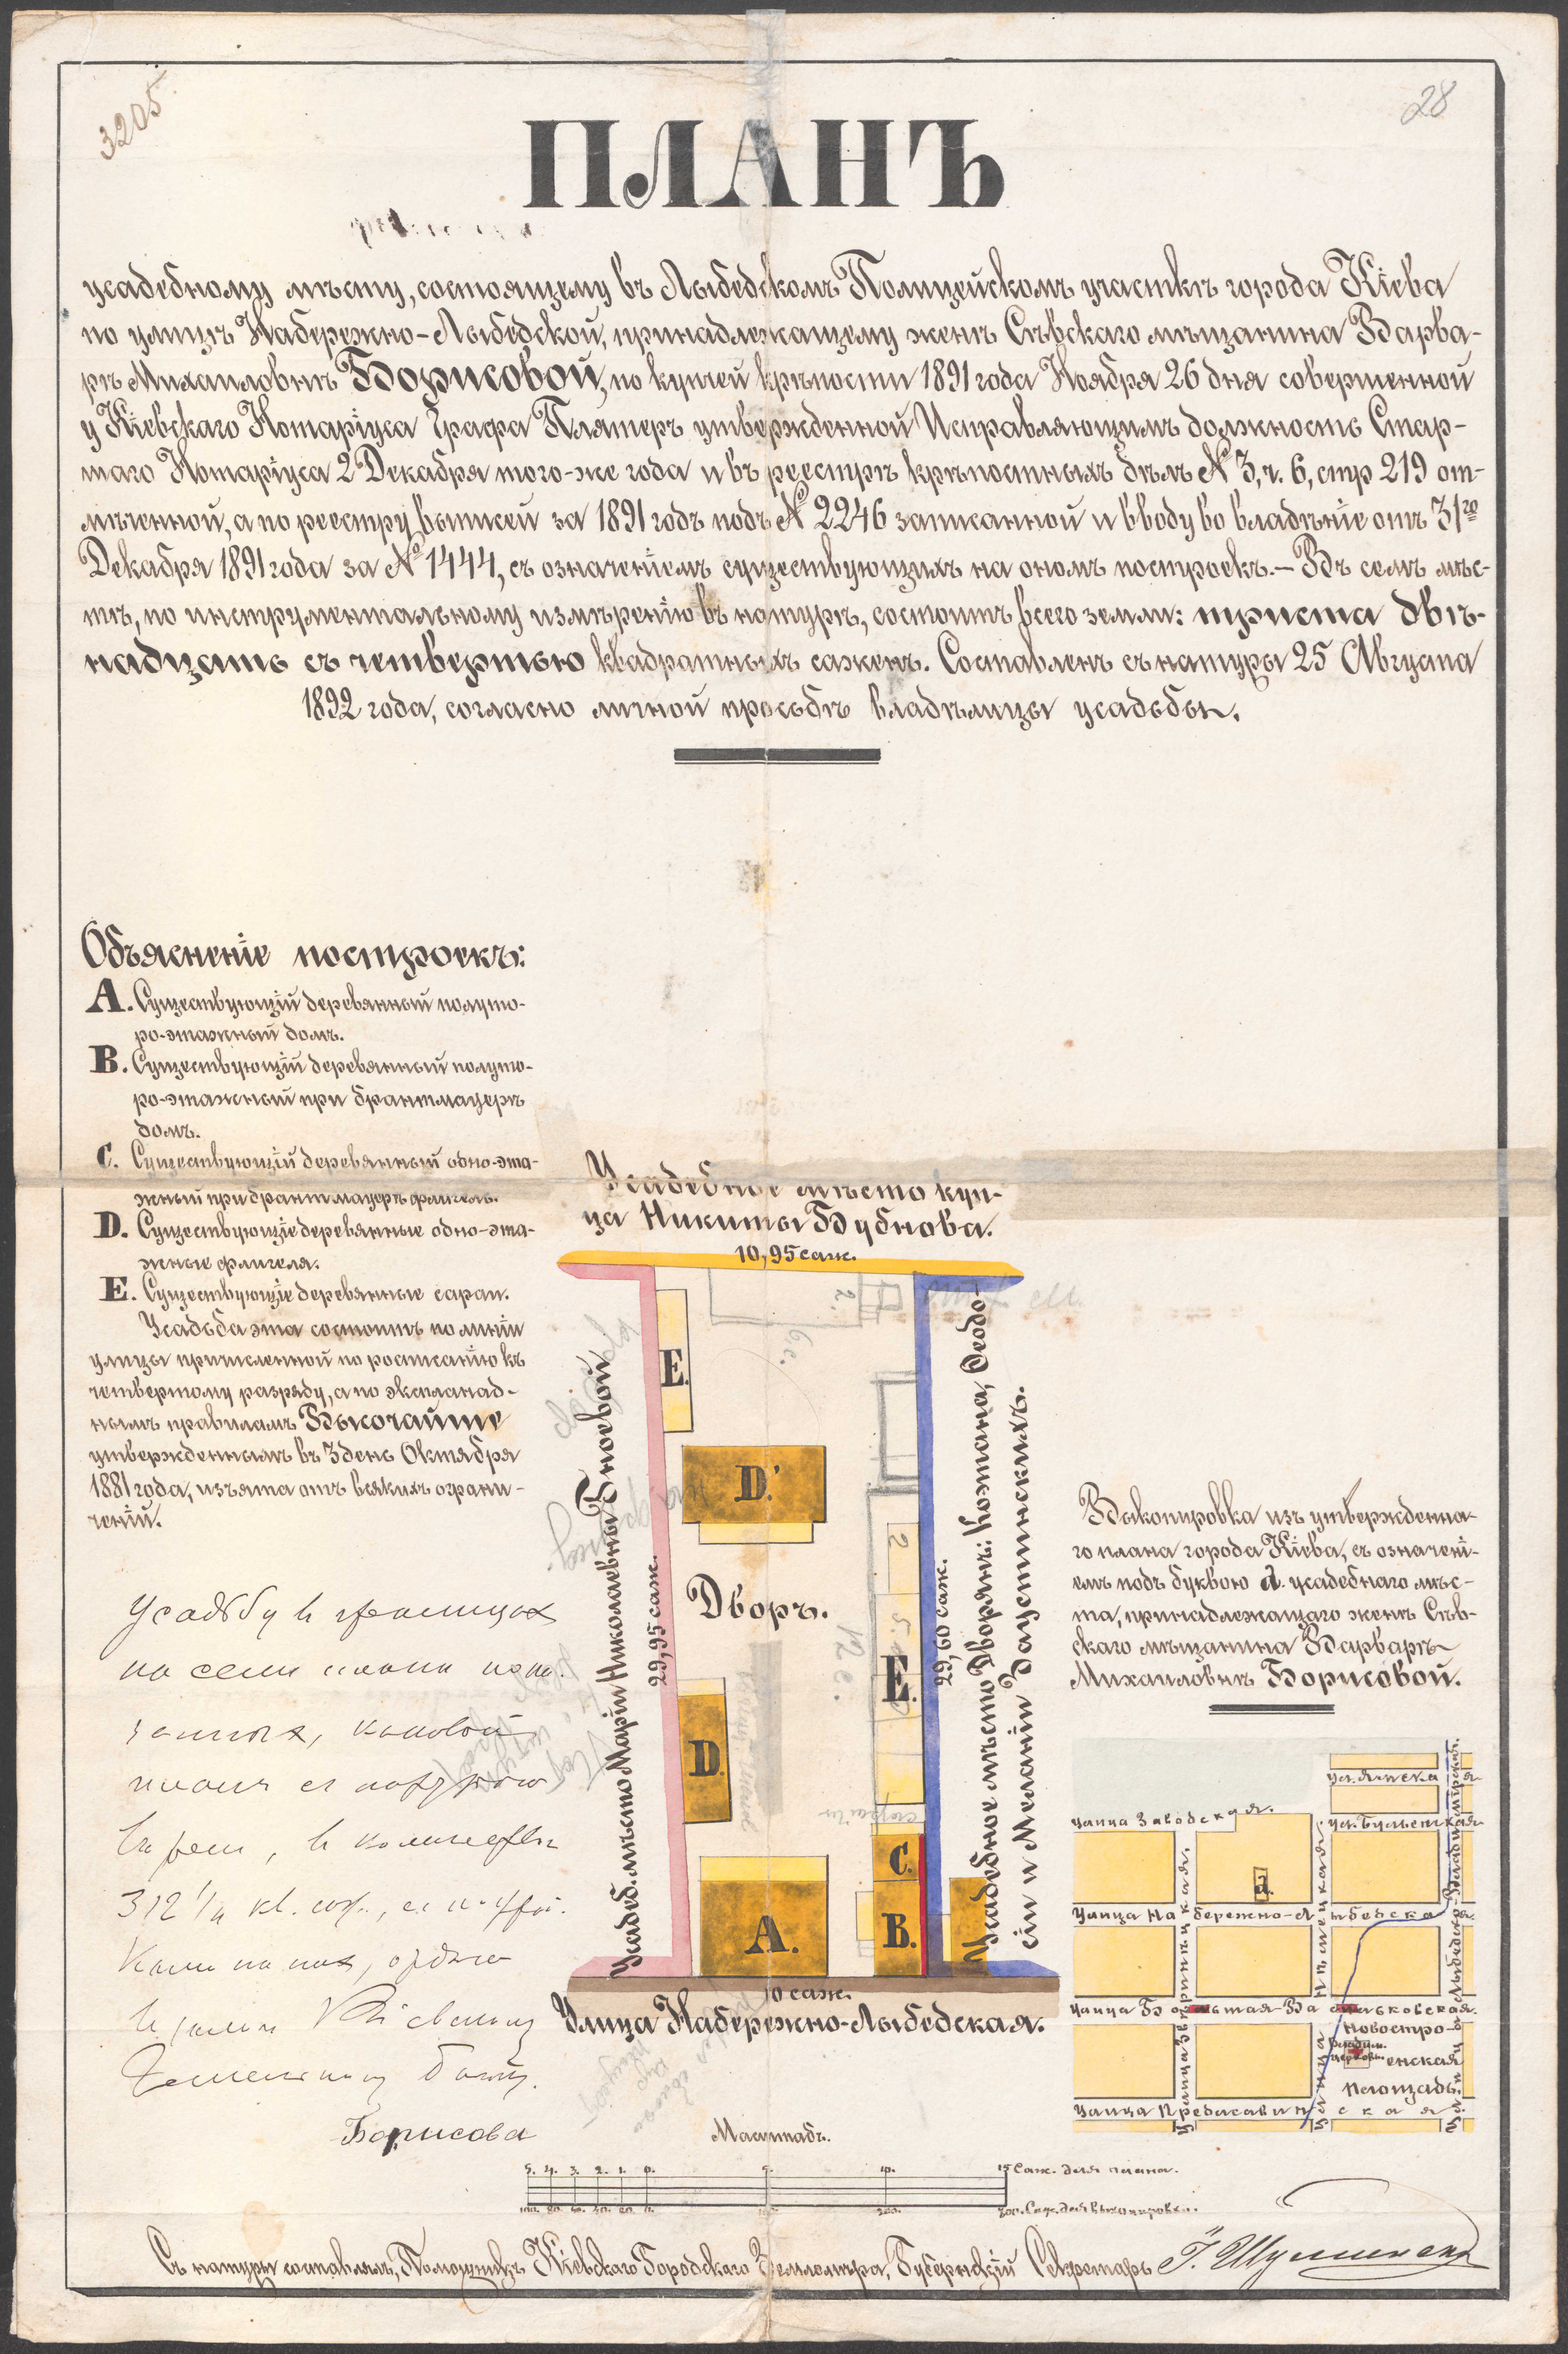 3205
28
ПЛАНЪ
усадебному мѣсту, состоящему въ Лыбедскомъ Полицейскомъ участкѣ города Кіева
по улицѣ Набережно-Лыбедской, принадлежащему женѣ Сѣвскаго мѣщанина Варва-
рѣ Михайловнѣ Борисовой, по купчей крѣпости 1891 года Ноября 26 дня совершенной
у Кіевскаго Нотаріуса Графа Плятеръ утвержденной Исправляющимъ должность Стар-
шаго Нотаріуса 2 Декабря того-же года и въ реестрѣ крѣпостныхъ дѣлъ № 3, ч. 6, стр 219 от-
мѣченной, а по реестру выписей за 1891 годъ подъ № 2246 записанной и вводу во владѣніе отъ 31го
Декабря 1891 года за № 1444, съ означеніемъ существующихъ на ономъ построекъ.- Въ семъ мѣс-
тѣ, по инструментальному измѣренію въ натурѣ, состоитъ всего земли: триста двѣ-
надцать съ четвертью квадратныхъ сажень. Составленъ съ натуры 25 Августа
1892 года, согласно личной просьбѣ владѣлицы усадьбы.
Объясненіе построекъ:
A. Существующій деревянный полуто-
ро-этажный домъ.
B. Существующій деревянный полуто-
ро-этажный при брантмауерѣ
домъ.
C. Существующій деревянный одно-эта-
жный при брантмауерѣ флигель.
D. Существующіе деревянные одно-эта-
жные флигеля.
E. Существующіе деревянные сараи.
Усадьба эта состоитъ по линіи
улицы причисленной по росписанію къ
четвертому разряду, а по эспланад-
нымъ правиламъ Высочайше
утвержденнымъ въ 3 день Октября
1881 года, изъята отъ всякихъ ограни-
ченій.
Усадьбу в границах
на семъ планѣ пока-
занных, каковой
планъ съ натурою
вѣренъ, в количествѣ
312 1/4 кв. саж., съ построй-
ками на нихъ, отдаю
в залогъ Кіевскому
Земельному банку.
Борисова
Усадебное мѣсто куп-
ца Никиты Бубнова.
10,95 саж.
Усадеб. мѣсто Маріи Николаевны Гноевой
29,95 саж.
E.
D.'
Дворъ.
D.
A.
2
E.
C.
B.
12 с.
6 с.
29,60 саж.
Усадебное мѣсто Дворянъ: Романа, Ѳеодо-
сіи и Меланіи Заустинскихъ.
10 саж.
Улица Набережно-Лыбедская.
Выкопировка изъ утвержденна-
го плана города Кіева, съ означені-
емъ подъ буквою d. усадебнаго мѣс-
та, принадлежащаго женѣ Сѣв-
скаго мѣщанина Варварѣ
Михайловнѣ Борисовой.
ул. Ямская
улица Заводская.
ул. Бульонская
d.
Улица Набережно-Лыбедская
улица Большая-Васильковская.
Новостро-
Владим.
церковь.
енская
площадь.
улица Предславинская
улица Звѣринецкая.
улица Нѣмецкая
Масштабъ.
5. 4. 3. 2. 1. 0. 5. 10. 15 Саж. для плана.
100. 80. 60. 40. 20. 0. 100. 200. 300. Саж. для выкопировки.
Съ натуры составилъ, Помощникъ Кіевскаго Городскаго Землемѣра, Губернскій Секретарь